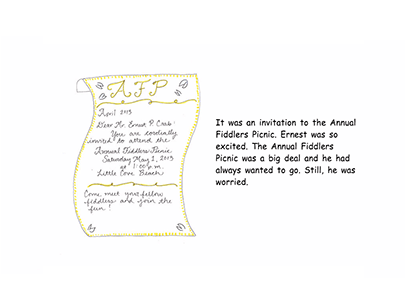 AFP
April 2013
Dear Mr. Ernest P. Crab:
You are cordially
invited to attend the
Annual Fiddlers Picnic
Saturday May 1, 2013
at 1:00 p.m.
Little Cove Beach
Come meet your fellow
fiddlers and join the
fun!
It was an invitation to the Annual
Fiddlers Picnic. Ernest was so
excited. The Annual Fiddlers
Picnic was a big deal and he had
always wanted to go. Still, he was
worried.